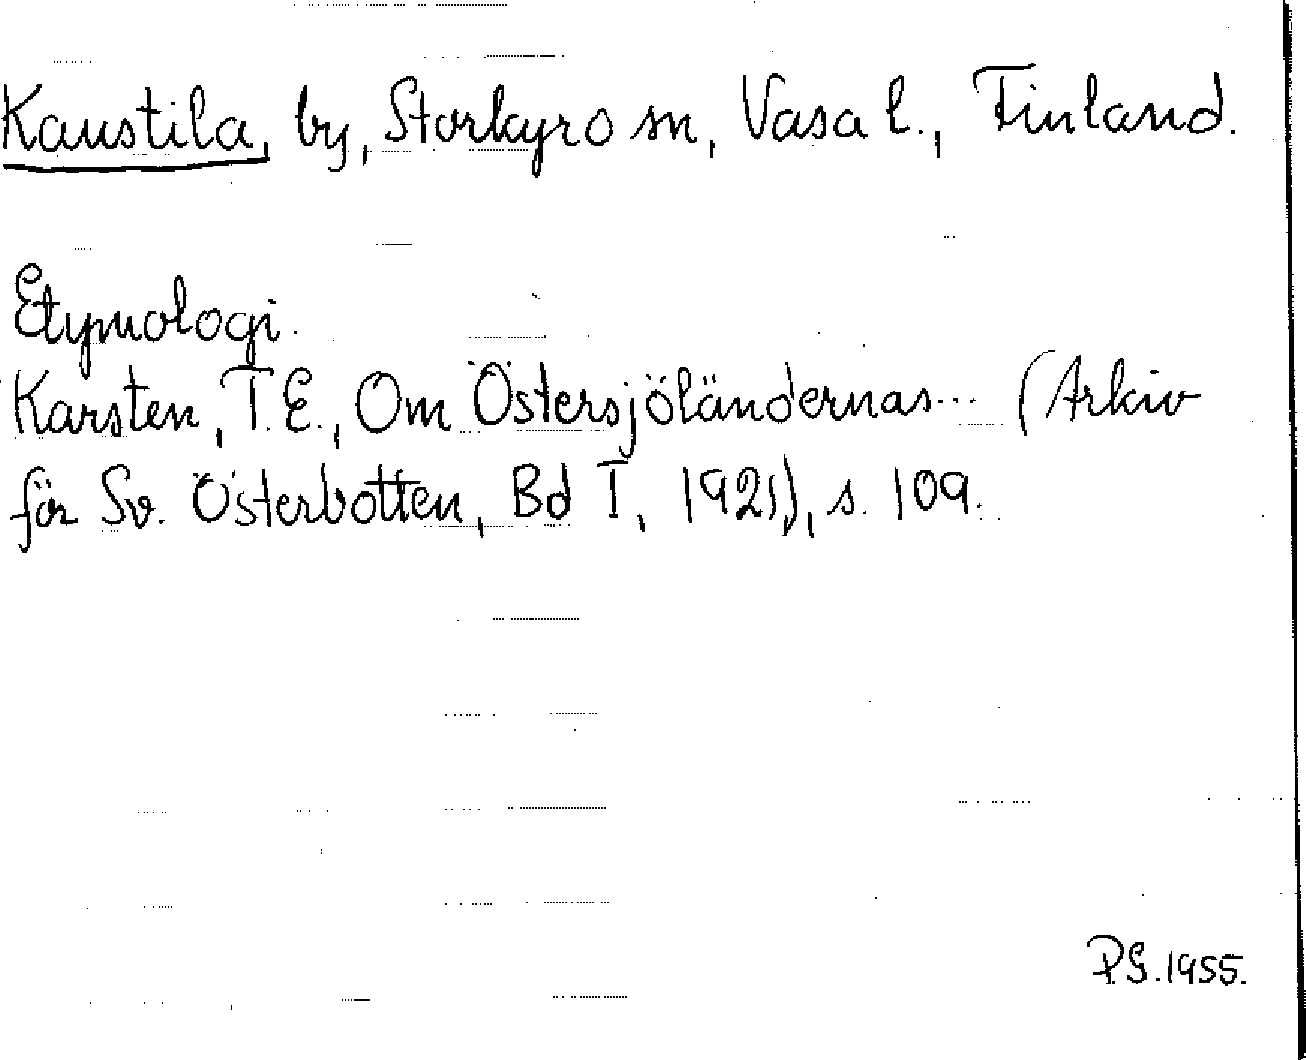 Kaustila, by, Storkyro sn, Vasa l., Finland.
Etymologi.
Karsten, T.E., Om Östersjöländernas... (Arkiv
för Sv. Österbotten, Bd I, 1921), s. 109.
P.S. 1955.